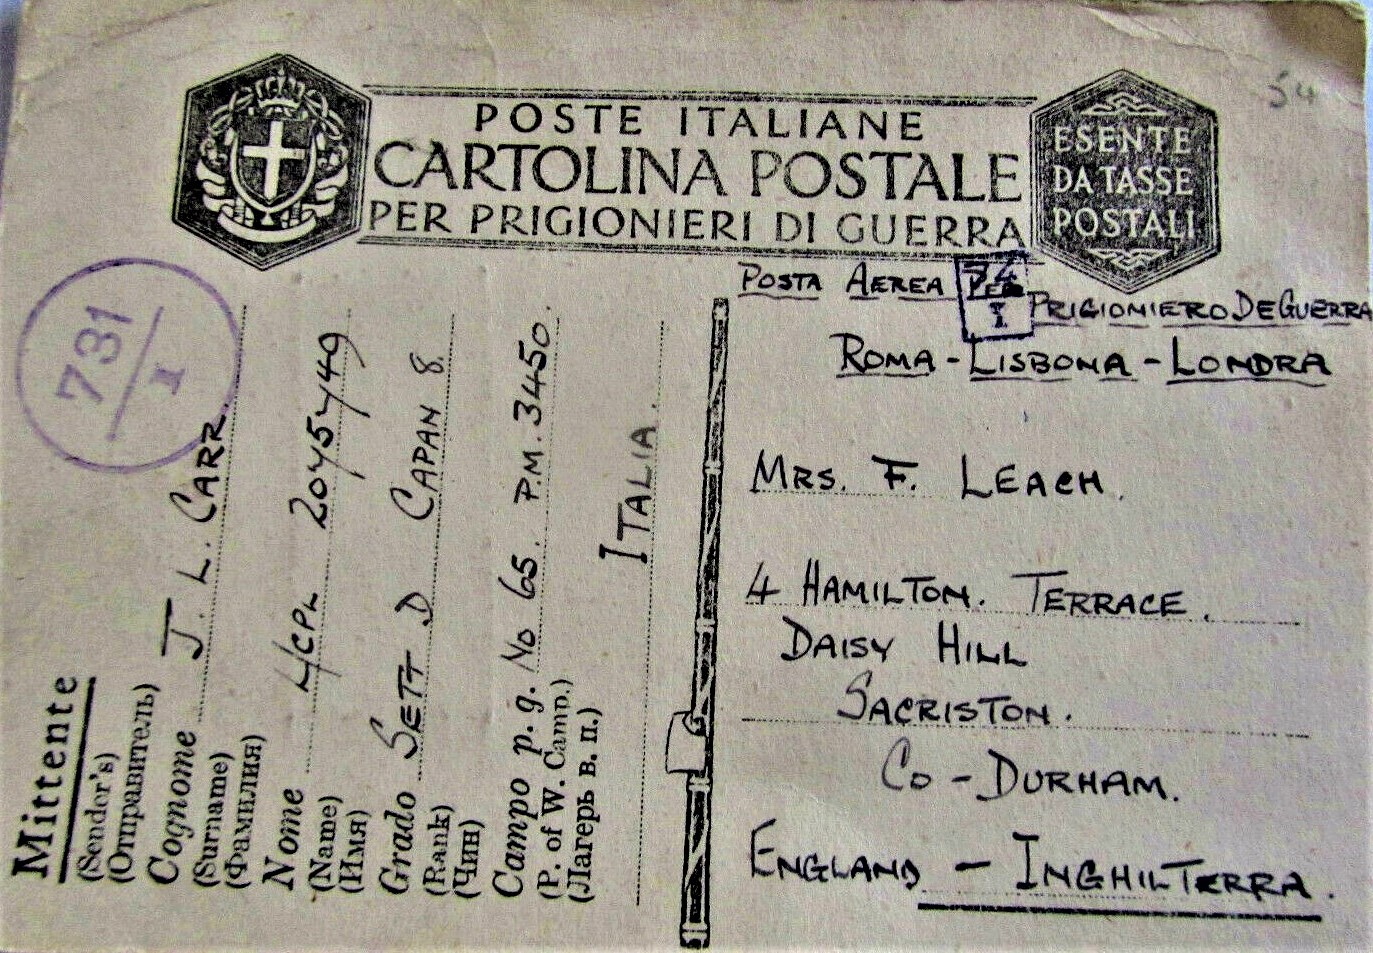 POSTE ITALIANE
CARTOLINA POSTALE
PER PRIGIONIERI DI GUERRA
ESENTE
DA TASSE
POSTALI
54
731
I
Mittente
(Sender's)
(Отправитель)
Cognome J. L. CARR.
(Surname)
(Фамилия)
Nome L/CPL 2045449
(Name)
(Имя)
Grado SETT D CAPAN 8.
(Rank)
(Чин)
Campo p. g. No 65. P.M. 3450.
(P. of W. Camp.)
(Лагерь в. п.)
ITALIA.
POSTA AEREA PER PRIGIONIERO DE GUERRA
I
ROMA - LISBONA - LONDRA
MRS. F. LEACH.
4 HAMILTON. TERRACE.
DAISY HILL
SACRISTON.
CO - DURHAM.
ENGLAND - INGHILTERRA.